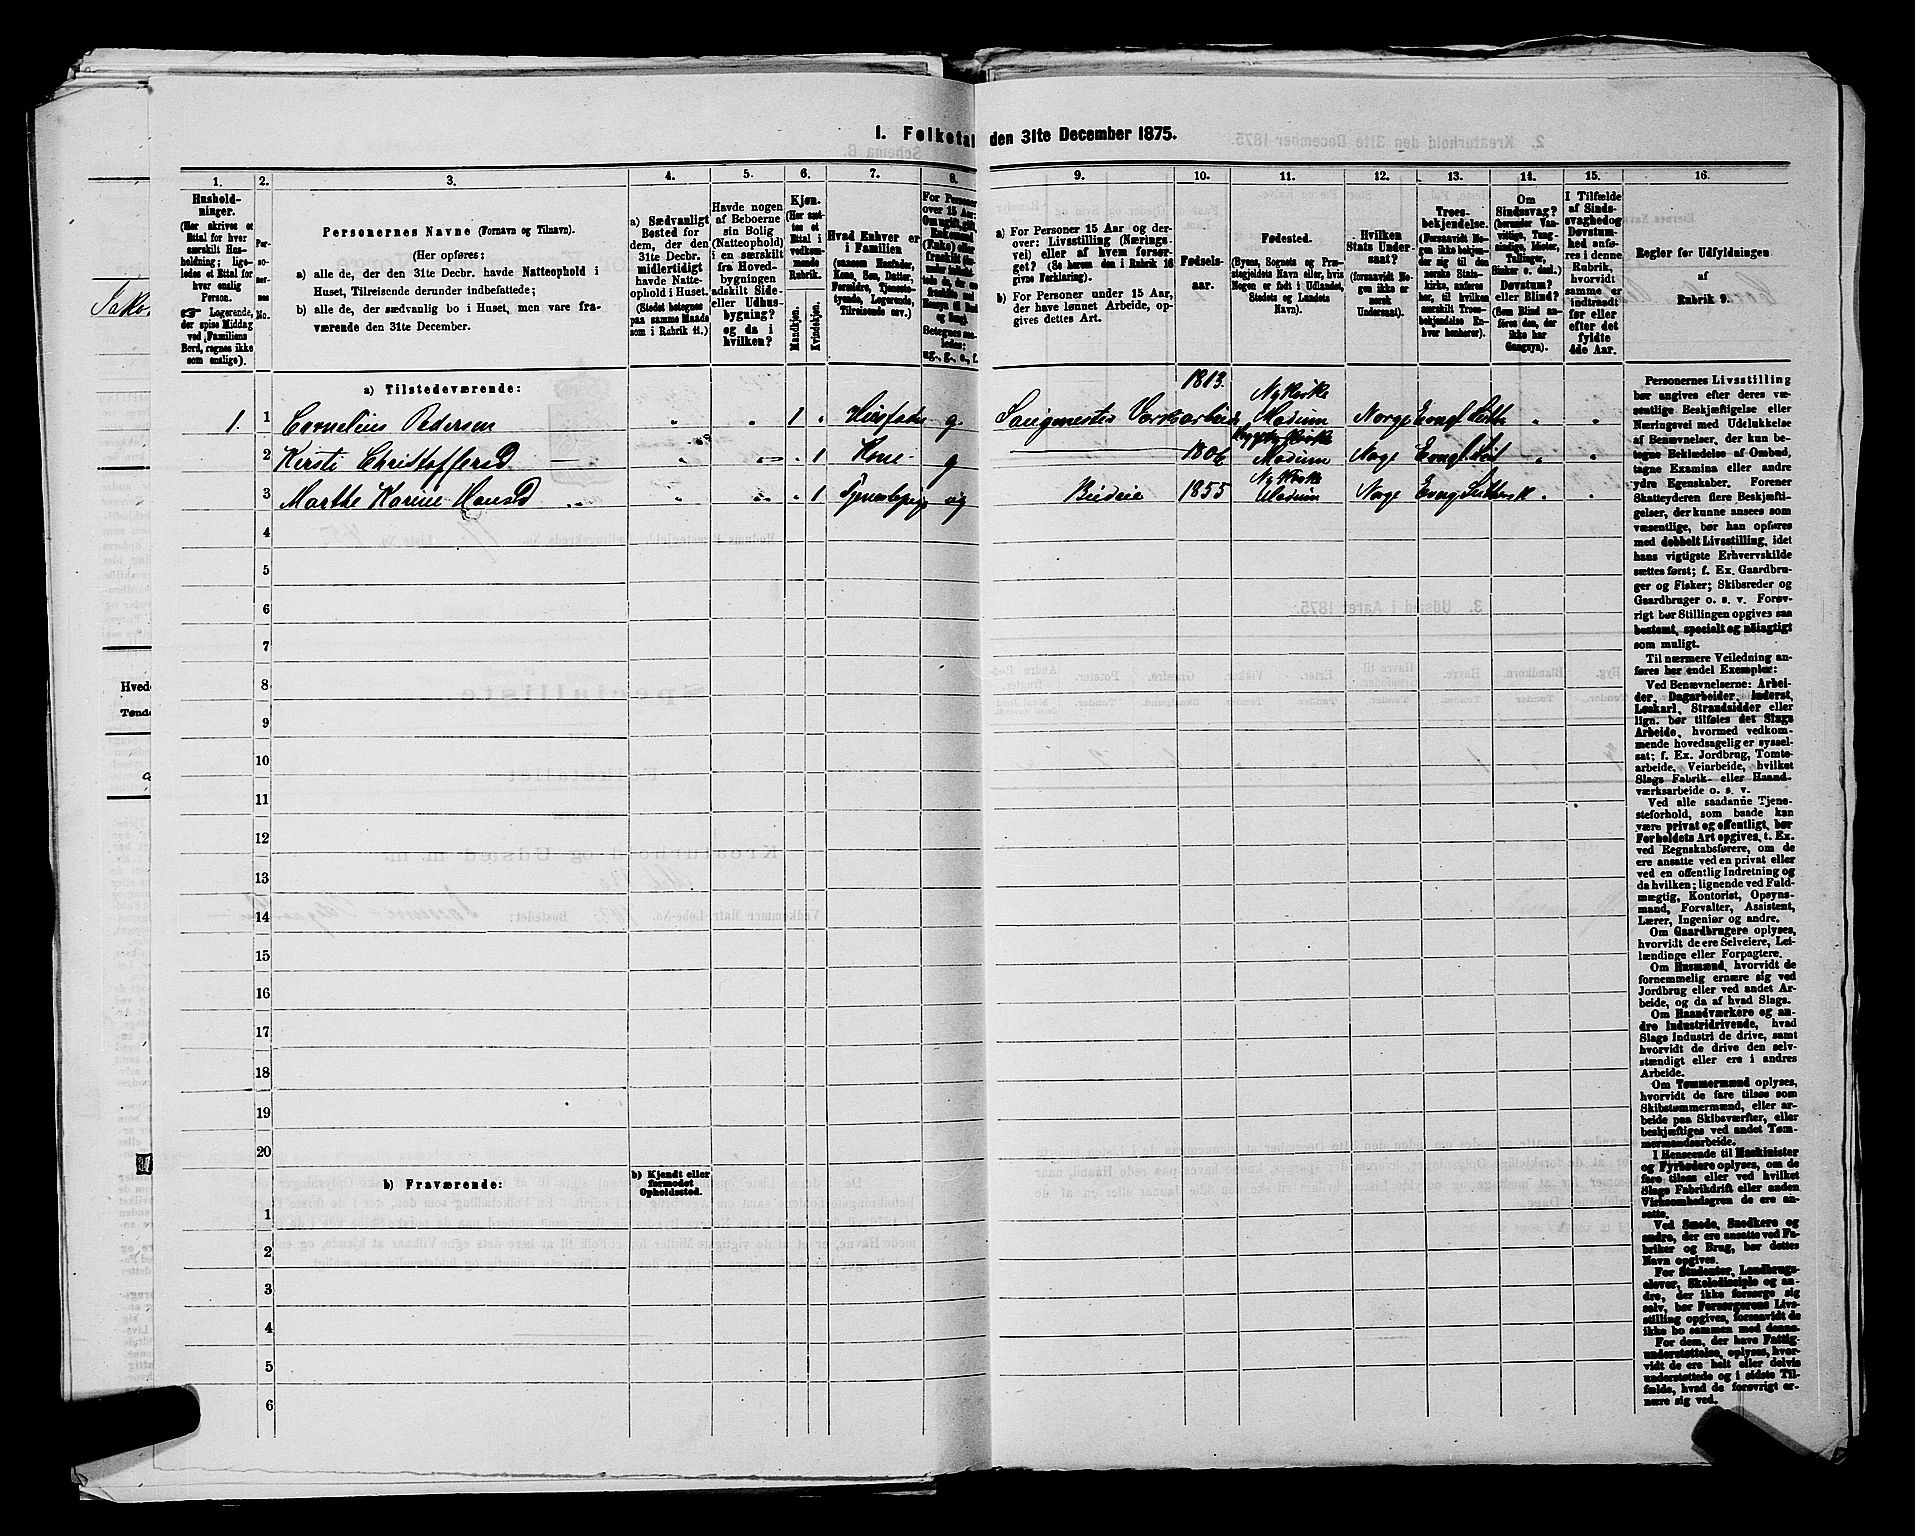 I. Folketal den 31te December 1875.
1.
2.
3.
4.
5.
6.
7.
8.
9.
10.
11.
12.
13.
14.
15.
16.
Husholdninger.
(Her skrives et
Ettal for hver
særskilt Husholdning;
ligeledes et Ettal for
hver enslig
Person.
☞ Logerende,
der spise Middag
ved Familiens
Bord, regnes ikke
som enslige).
Personernes No.
Personernes Navne (Fornavn og Tilnavn).
(Her opføres:
a) alle de, der den 31te Decbr. havde Natteophold i
Huset, Tilreisende derunder indbefattede;
b) alle de, der sædvanlig bo i Huset, men vare fraværende
den 31te December.
a) Sædvanligt
Bosted for
dem, der den
31te Decbr.
midlertidigt
havde Natteophold
i Huset.
(Stedet betegnes
paa samme Maade
som i Rubrik 11.)
Havde nogen
af Beboerne
sin Bolig
(Natteophold)
i en særskilt
fra Hovedbygningen
adskilt Side-
eller Udhusbygning?
og da i
hvilken?
Kjøn.
(Her sættes et
Ettal i
vedkommende
Rubrik.
Mandkjøn.
Kvindekjøn.
Hvad Enhver er
i Familien
(saasom Husfader,
Kone, Søn, Datter,
Forældre, Tjenestetyende,
Logerende,
Tilreisende osv.)
For Personer
over 15 Aar:
a) For Personer 15 Aar og derover:
Livsstilling (Næringsvei)
eller af hvem forsørget?
(Se herom den i Rubrik 16
givne Forklaring).
b) For Personer under 15 Aar,
der have lønnet Arbeide, opgives
dettes Art.
Fødselsaar.
Fødested.
(Byens, Sognets og Præstegjeldets
Navn eller, hvis
Nogen er født i Udlandet,
Stedets og Landets
Navn).
Hvilken
Stats Undersaat?
(forsaavidt Nogen
ikke er
norsk
Undersaat).
Troesbekjendelse.
(Forsaavidt Nogen
ikke bekjender
sig til den
norske Statskirke,
anføres
her, til hvilken
særskilt Troesbekjendelse
Enhver
henhører).
Om
Sindssvag?
(herunder Vanvittige,
Tungsindige,
Idioter,
Tullinger,
Sinker o. desl.)
Døvstum?
eller Blind?
(Som Blind anføres
den, der
ikke har
Gangsyn).
I Tilfælde
af Sindssvaghed
og
Døvstumhed
anføres
i denne
Rubrik,
hvorvidt
samme er
indtraadt
før eller
efter det
fyldte
4de Aar.
Regler for Udfyldningen
af
Rubrik 9.
a) Tilstedeværende:
1. 1 Cornelius Pedersen 1 Husfader g. Sangmester Værksarbeider 1813. Nykirke Modum Norge Evngl Luth
2 Kirsti Christoffersd 1 Kone g 1806 Modum Norge Evngl Lut
3 Marthe Karine Hansd 1 Tjenestepige ug Budeie 1855 Nykirke Modum Norge Evng Luthersk
4
5
6
7
8
9
10
11
12
13
14
15
16
17
18
19
20
b) Fraværende:
b) Kjendt eller
formodet
Opholdssted.
1
2
3
4
5
6
Personernes Livsstilling
bør angives efter deres væsentlige
Beskjæftigelse eller
Næringsvei med Udelukkelse
af Benævnelser, der kun betegne
Beklædelse af Ombud,
tagne Examina eller andre
ydre Egenskaber. Forener
Skatteyderen flere Beskjæftigelser,
der kunne ansees som
væsentlige, bør han opføres
med dobbelt Livsstilling, idet
hans vigtigste Erhvervskilde
sættes først; f. Ex. Gaardbruger
og Fisker; Skibsreder og
Gaardbruger o. s. v. Forøvrigt
bør Stillingen opgives saa
bestemt, specielt og nøiagtigt
som muligt.
Til nærmere Veiledning anføres
her endel Exempler:
Ved Benævnelserne: Arbeider,
Dagarbeider, Inderst,
Løskarl, Strandsidder eller
lign. bør tilføies det Slags
Arbeide, hvormed vedkommende
hovedsagelig er sysselsat;
f. Ex. Jordbrug, Tomtearbeide,
Veiarbeide, hvilket
Slags Fabrik- eller Haandværksarbeide
o. s. v.
Ved alle saadanne Tjenesteforhold,
som baade kan
være privat og offentligt, bør
Forholdets Art opgives, t. Ex.
ved Regnskabsførere, om de
ere ansatte ved en privat eller
ved en offentlig Indretning og
da hvilken; lignende ved Fuldmægtig,
Kontorist, Opsynsmand,
Forvalter, Assistent,
Lærer, Ingeniør og andre.
Om Gaardbrugere oplyses,
hvorvidt de ere Selveiere, Leilændinge
eller Forpagtere.
Om Husmænd, hvorvidt de
fornemmelig ernære sig ved
Jordbrug eller ved andet Arbeide,
og da af hvad Slags.
Om Haandværkere og andre
Industridrivende, hvad
Slags Industri de drive, samt
hvorvidt de drive den selvstændigt
eller ere i andres
Arbeide.
Om Tømmermænd oplyses,
hvorvidt de fare tilsøs som
Skibstømmermænd, eller arbeide
paa Skibsværfter, eller
beskjæftiges ved andet Tømmermandsarbeide.
I Henseende til Maskinister
og Fyrbødere oplyses, om de
fare tilsøs eller ved hvilket
Slags Fabrikdrift eller anden
Virksomhed de ere ansatte.
Ved Smede, Snedkere og
andre, der ere ansatte ved Fabriker
og Brug, bør dettes
Navn opgives.
For Studenter, Landbrugselever,
Skoledisciple og andre,
der ikke forsørge sig
selv, bør Forsørgerens Livsstilling
opgives, forsaavidt de
ikke bo sammen med denne.
For dem, der have Fattigunderstøttelse,
oplyses, hvorvidt
de ere helt eller delvis
understøttede og i sidste Tilfælde,
hvad de forøvrigt ernære
sig ved.